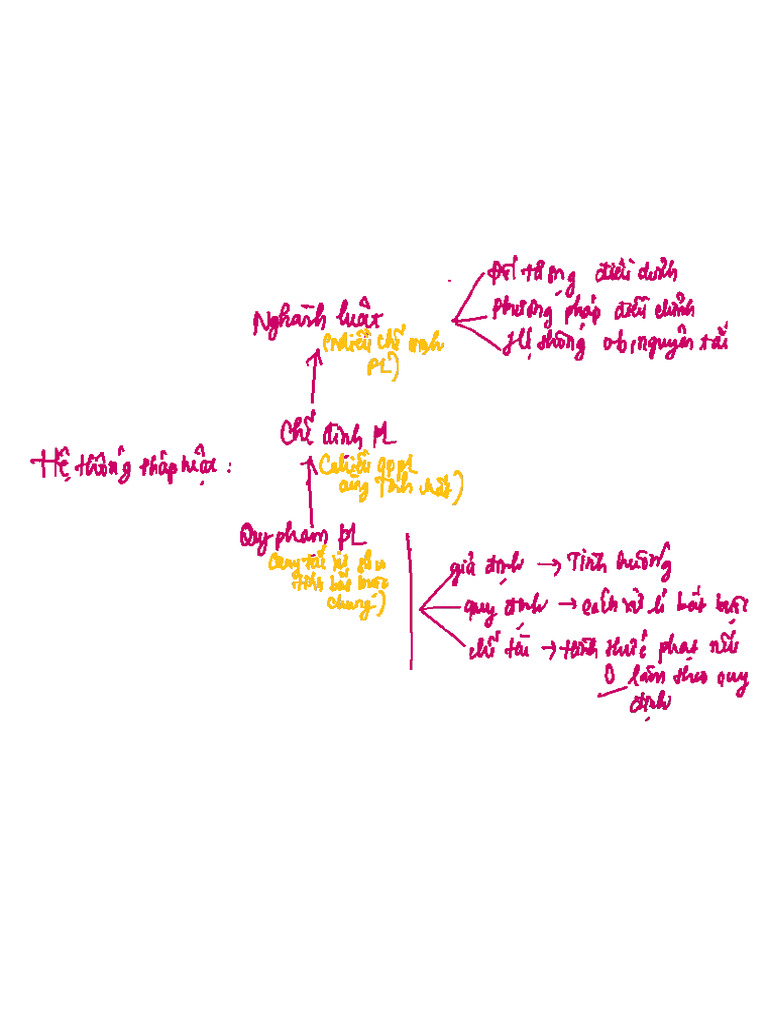 Đối tượng điều chỉnh
Nghành luật
Phương pháp điều chỉnh
Hệ thống vb, nguyên tắc
(nhiều chế định
PL)
Chế định PL
(nhiều qppl
cùng tính chất)
Hệ thống pháp luật :
Quy phạm PL
(quy tắc xử sự
tính bắt buộc
chung)
giả định → Tình huống
quy định → cách xử lí bắt buộc
chế tài → hình thức phạt nếu
0 làm theo quy
định